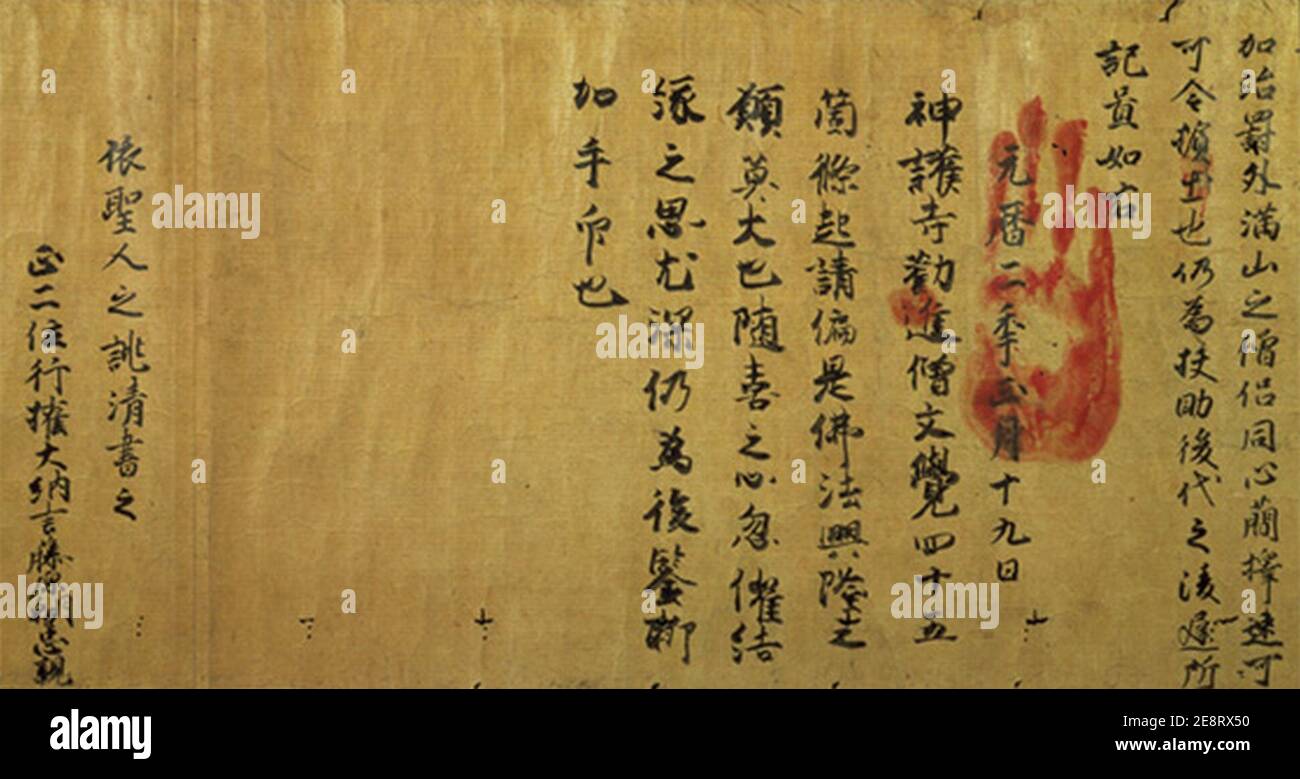 加治罸外満山之僧侶同心蕳擇速可
可令擯出也仍為扶助後代之淩遅所
記置如右
元暦二季正月十九日
神護寺勸進僧文覺四十五
箇條起請偏是佛法興隆之
願莫大也随喜之心忽催結
縁之思尤深仍為後鑒聊
加手印也
依聖人之誂清書之
正二位行權大納言藤原朝臣忠親
alamy
alamy
Image ID: 2E8RX50
www.alamy.com